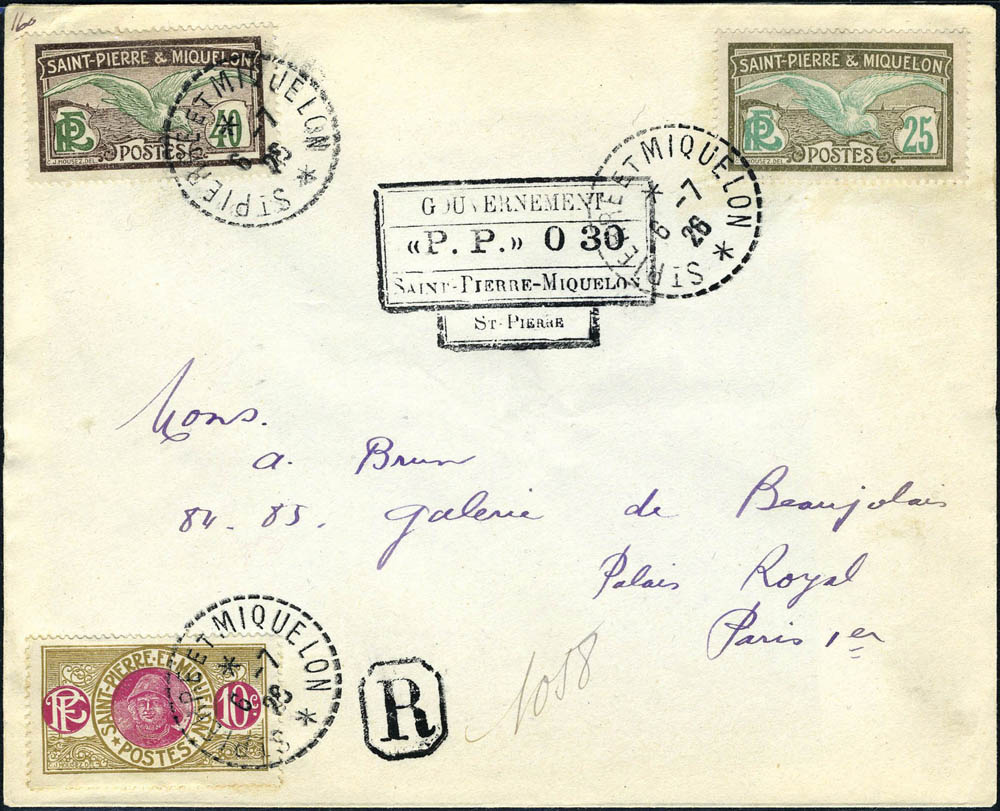 160
SAINT-PIERRE & MIQUELON
RF 40
POSTES
C.J.HOUSEZ.DEL.
ST PIERRE ET MIQUELON *
* 6 -7 26
SAINT-PIERRE & MIQUELON
RF 25
POSTES
ST PIERRE ET MIQUELON *
* 6 -7 26
GOUVERNEMENT
«P. P.» 0 30
SAINT-PIERRE-MIQUELON
ST-PIERRE
Mons.
A. Brun
84-85. Galerie de Beaujolais
Palais Royal
Paris 1er
SAINT-PIERRE-ET-MIQUELON
RF 10c.
*POSTES*
ST PIERRE ET MIQUELON *
* 6 -7 26
R
1058